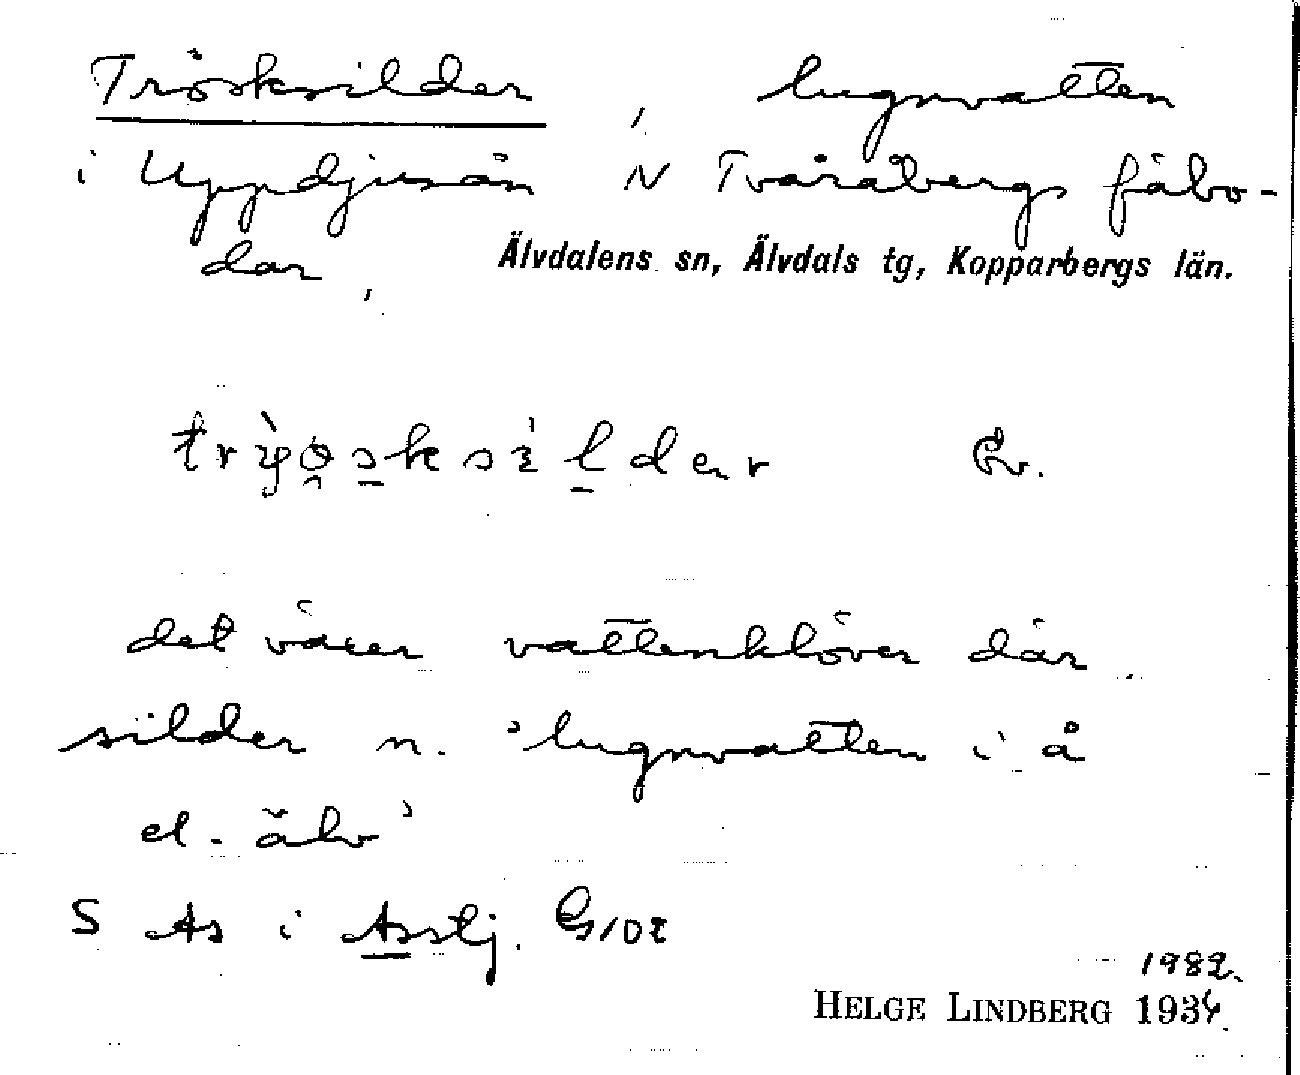 Trösksilder , lugnvatten
i Uppdjusån N Tvåråbergs fäbo-
dar , Älvdalens sn, Älvdals tg, Kopparbergs län.
det växer vattenklöver där
silder n. 'lugnvatten i å
el. älv'
S As i Asstj. G102
1982.
HELGE LINDBERG 1934